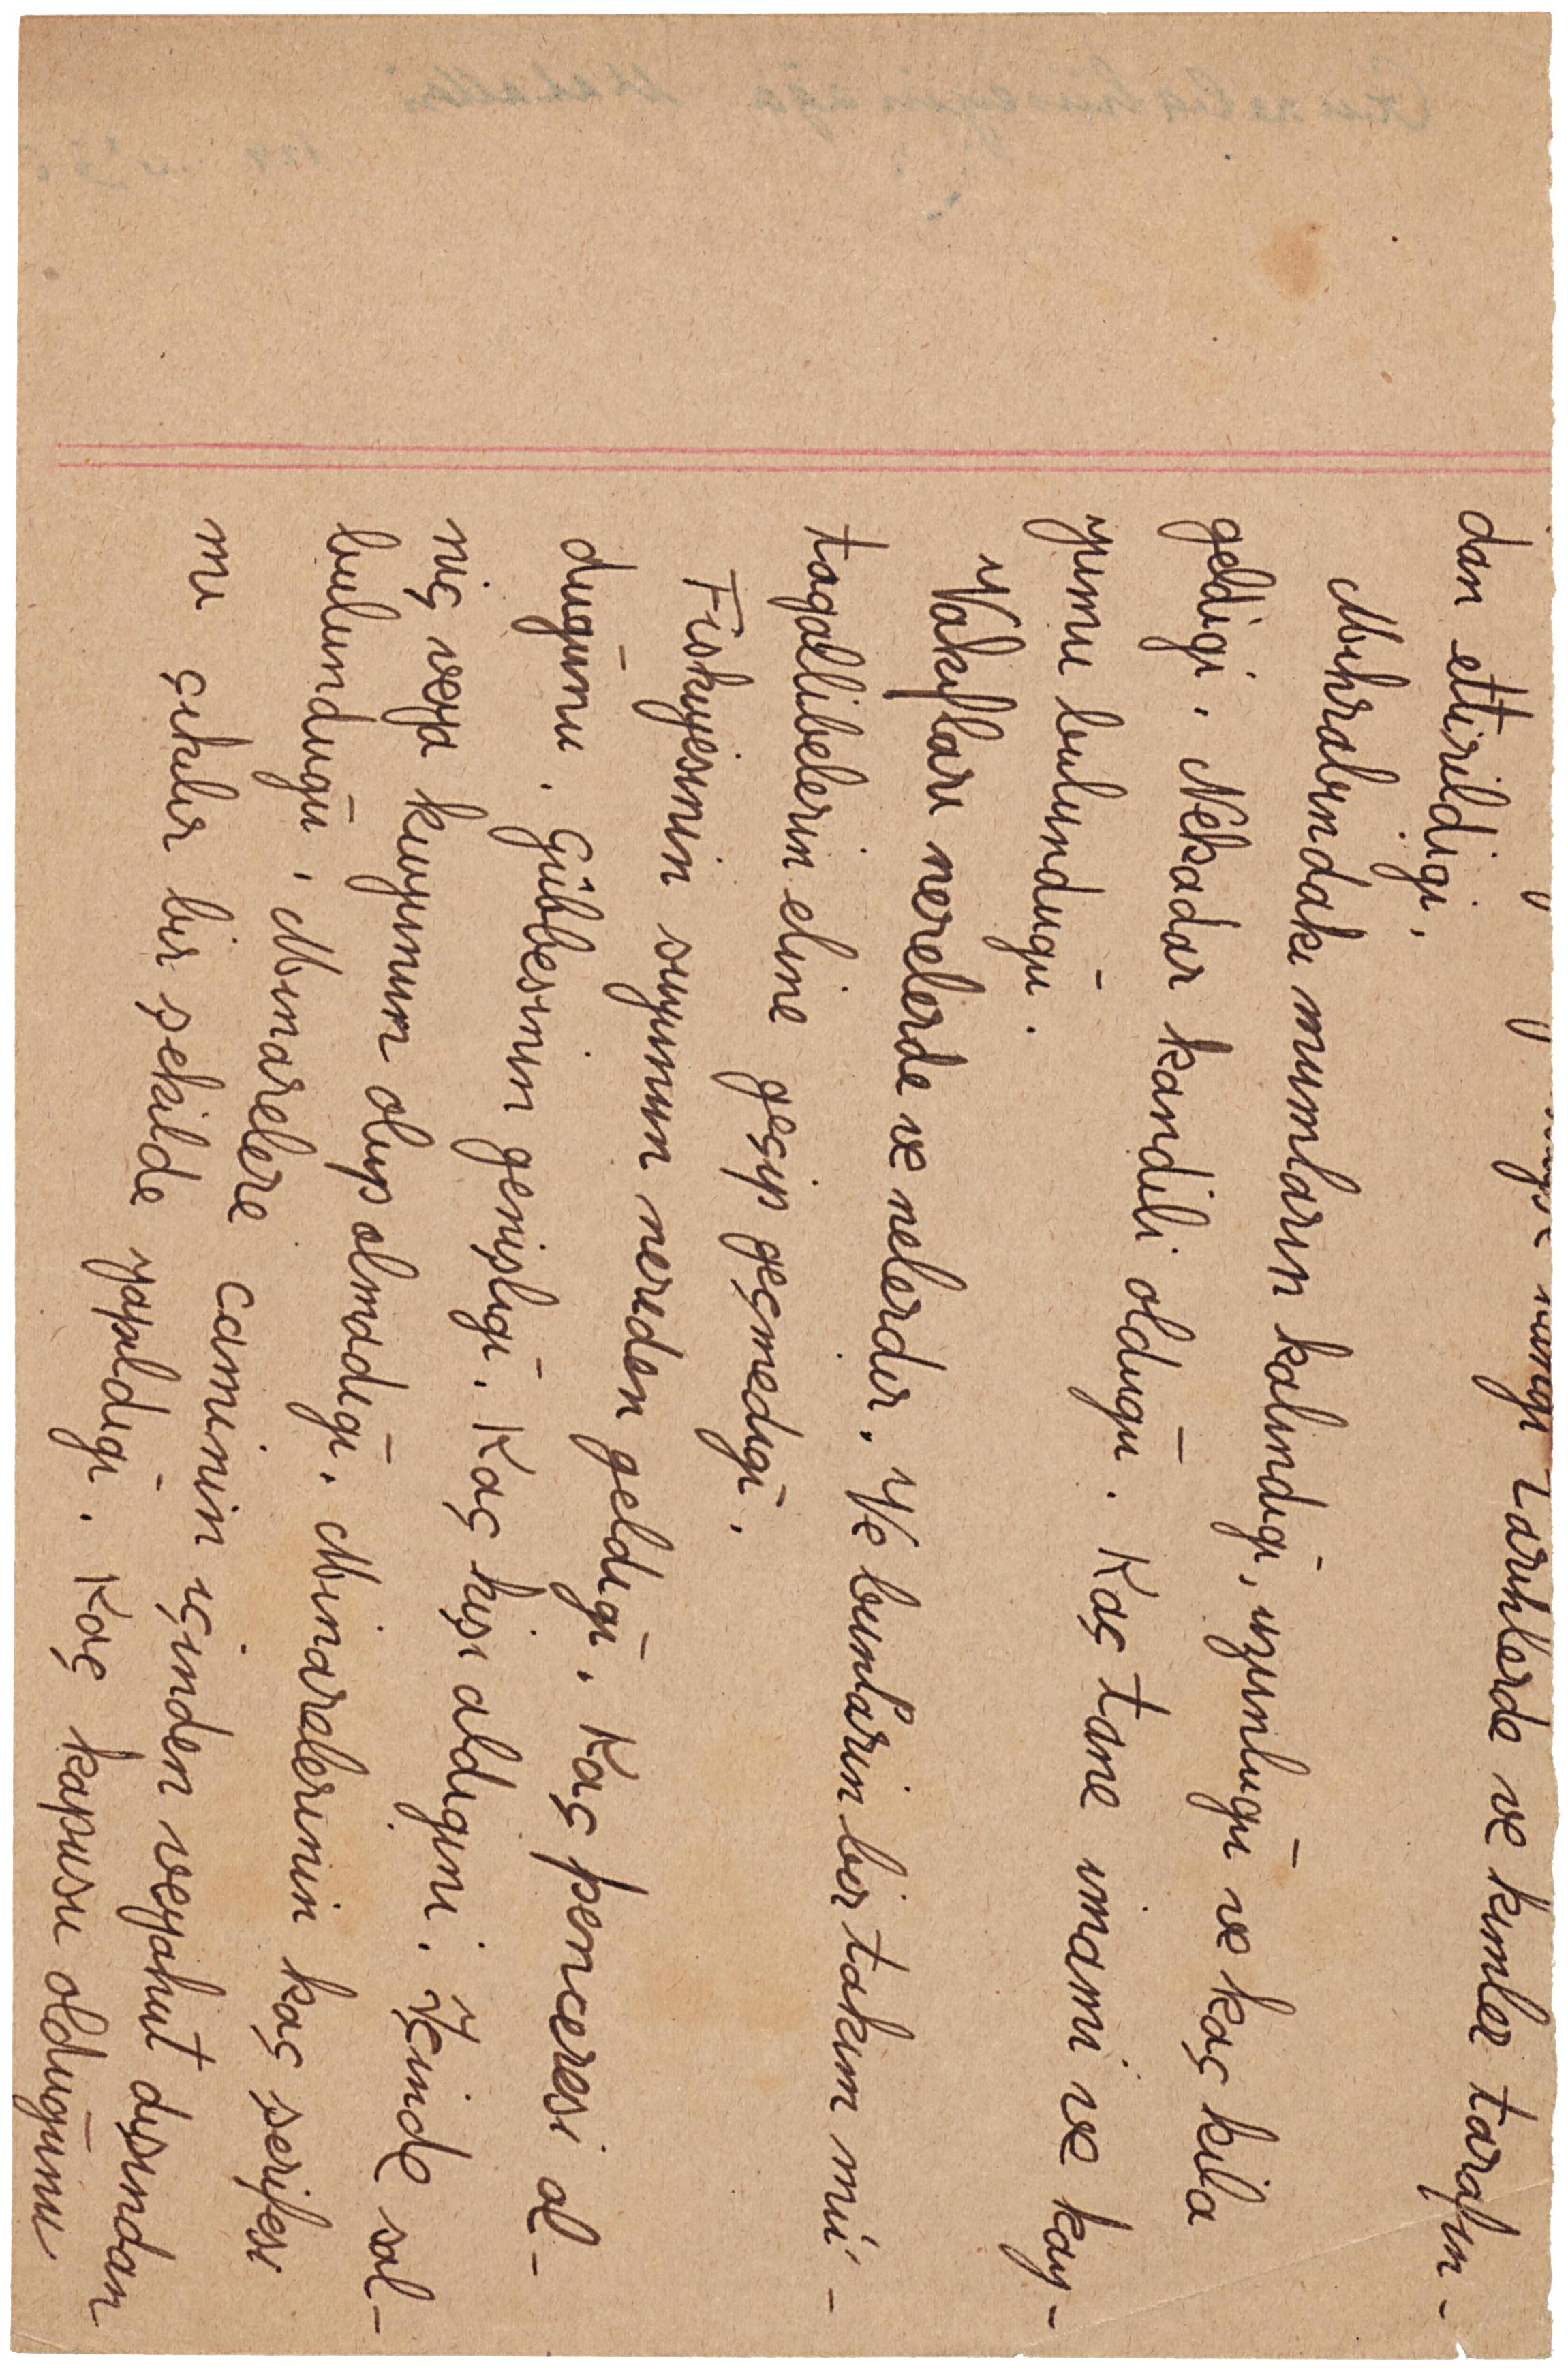 hangi tarihlerde ve kimler tarafın-
dan ettirildiği,
Mihrabındaki mumların kalındığı, uzunluğu ve kaç kila
geldiği, Nekadar kandili olduğu. Kaç tane imamı ve kay-
yumu bulunduğu.
Vakıfları nerelerde ve nelerdir. Ve bunların bir takım mü-
tagallibelerin eline geçip geçmediği,
Fiskiyesinin suyunun nereden geldiği, Kaç penceresi ol-
duğunu. Gübbesinin genişliği. Kaç kişi aldığını. İçinde sal-
niç veya kuyunun olup olmadığı, Minarelerinin kaç serifesi
bulunduğu, Minarelere caminin içinden veyahut dışından
mı çıkılır bir şekilde yapıldığı. Kaç kapusu olduğunu